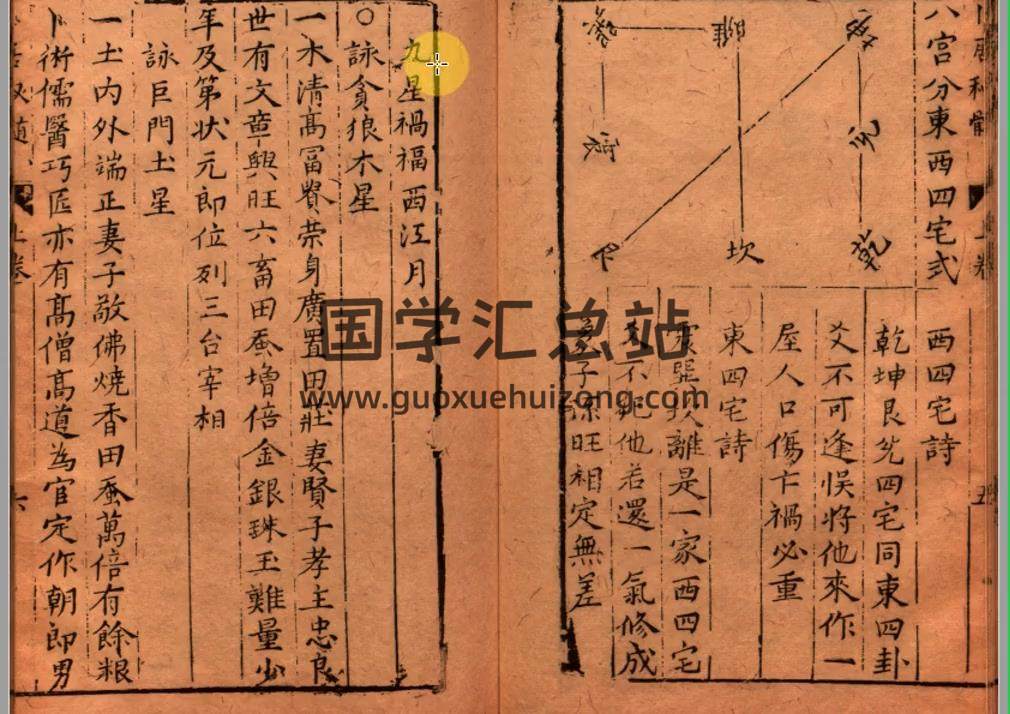 上卷
五
八宮分東西四宅式
坤 離 巽
兌 震
乾 坎 艮
西四宅詩
乾坤艮兌四宅同東四卦
爻不可逢悮將他來作一
屋人口傷亡禍必重
東四宅詩
震巽坎離是一家西四宅
爻不犯他若還一氣修成
子孫旺相定無差
九星禍福西江月
○詠貪狼木星
一木清髙冨貴荣身廣置田庄妻賢子孝主忠良
世有文章興旺六畜田蚕增倍金銀珠玉難量少
年及第状元郎位列三台宰相
詠巨門土星
一土内外端正妻子敬佛燒香田蚕萬倍有餘粮
卜術儒醫巧匠亦有髙僧髙道為官定作朝郎男
上卷
六
国学汇总站
www.guoxuehuizong.com